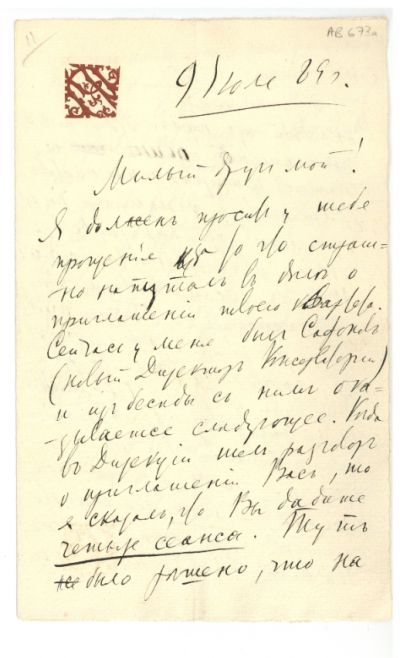 11
AB 673a
9 Июля 89 г.
Милый друг мой!
Я долженъ просить у тебя
прощенія за то что страш-
но напуталъ въ дѣлѣ о
приглашеніи твоего
Сейчасъ у меня былъ Сафоновъ
(новый Директоръ Консерваторіи)
и изъ бесѣды съ нимъ ока-
зывается слѣдующее. Когда
въ Дирекціи шелъ разговоръ
о приглашеніи Васъ, то
я сказалъ, что Вы
четыре сеанса. Тутъ
было рѣшено, что на